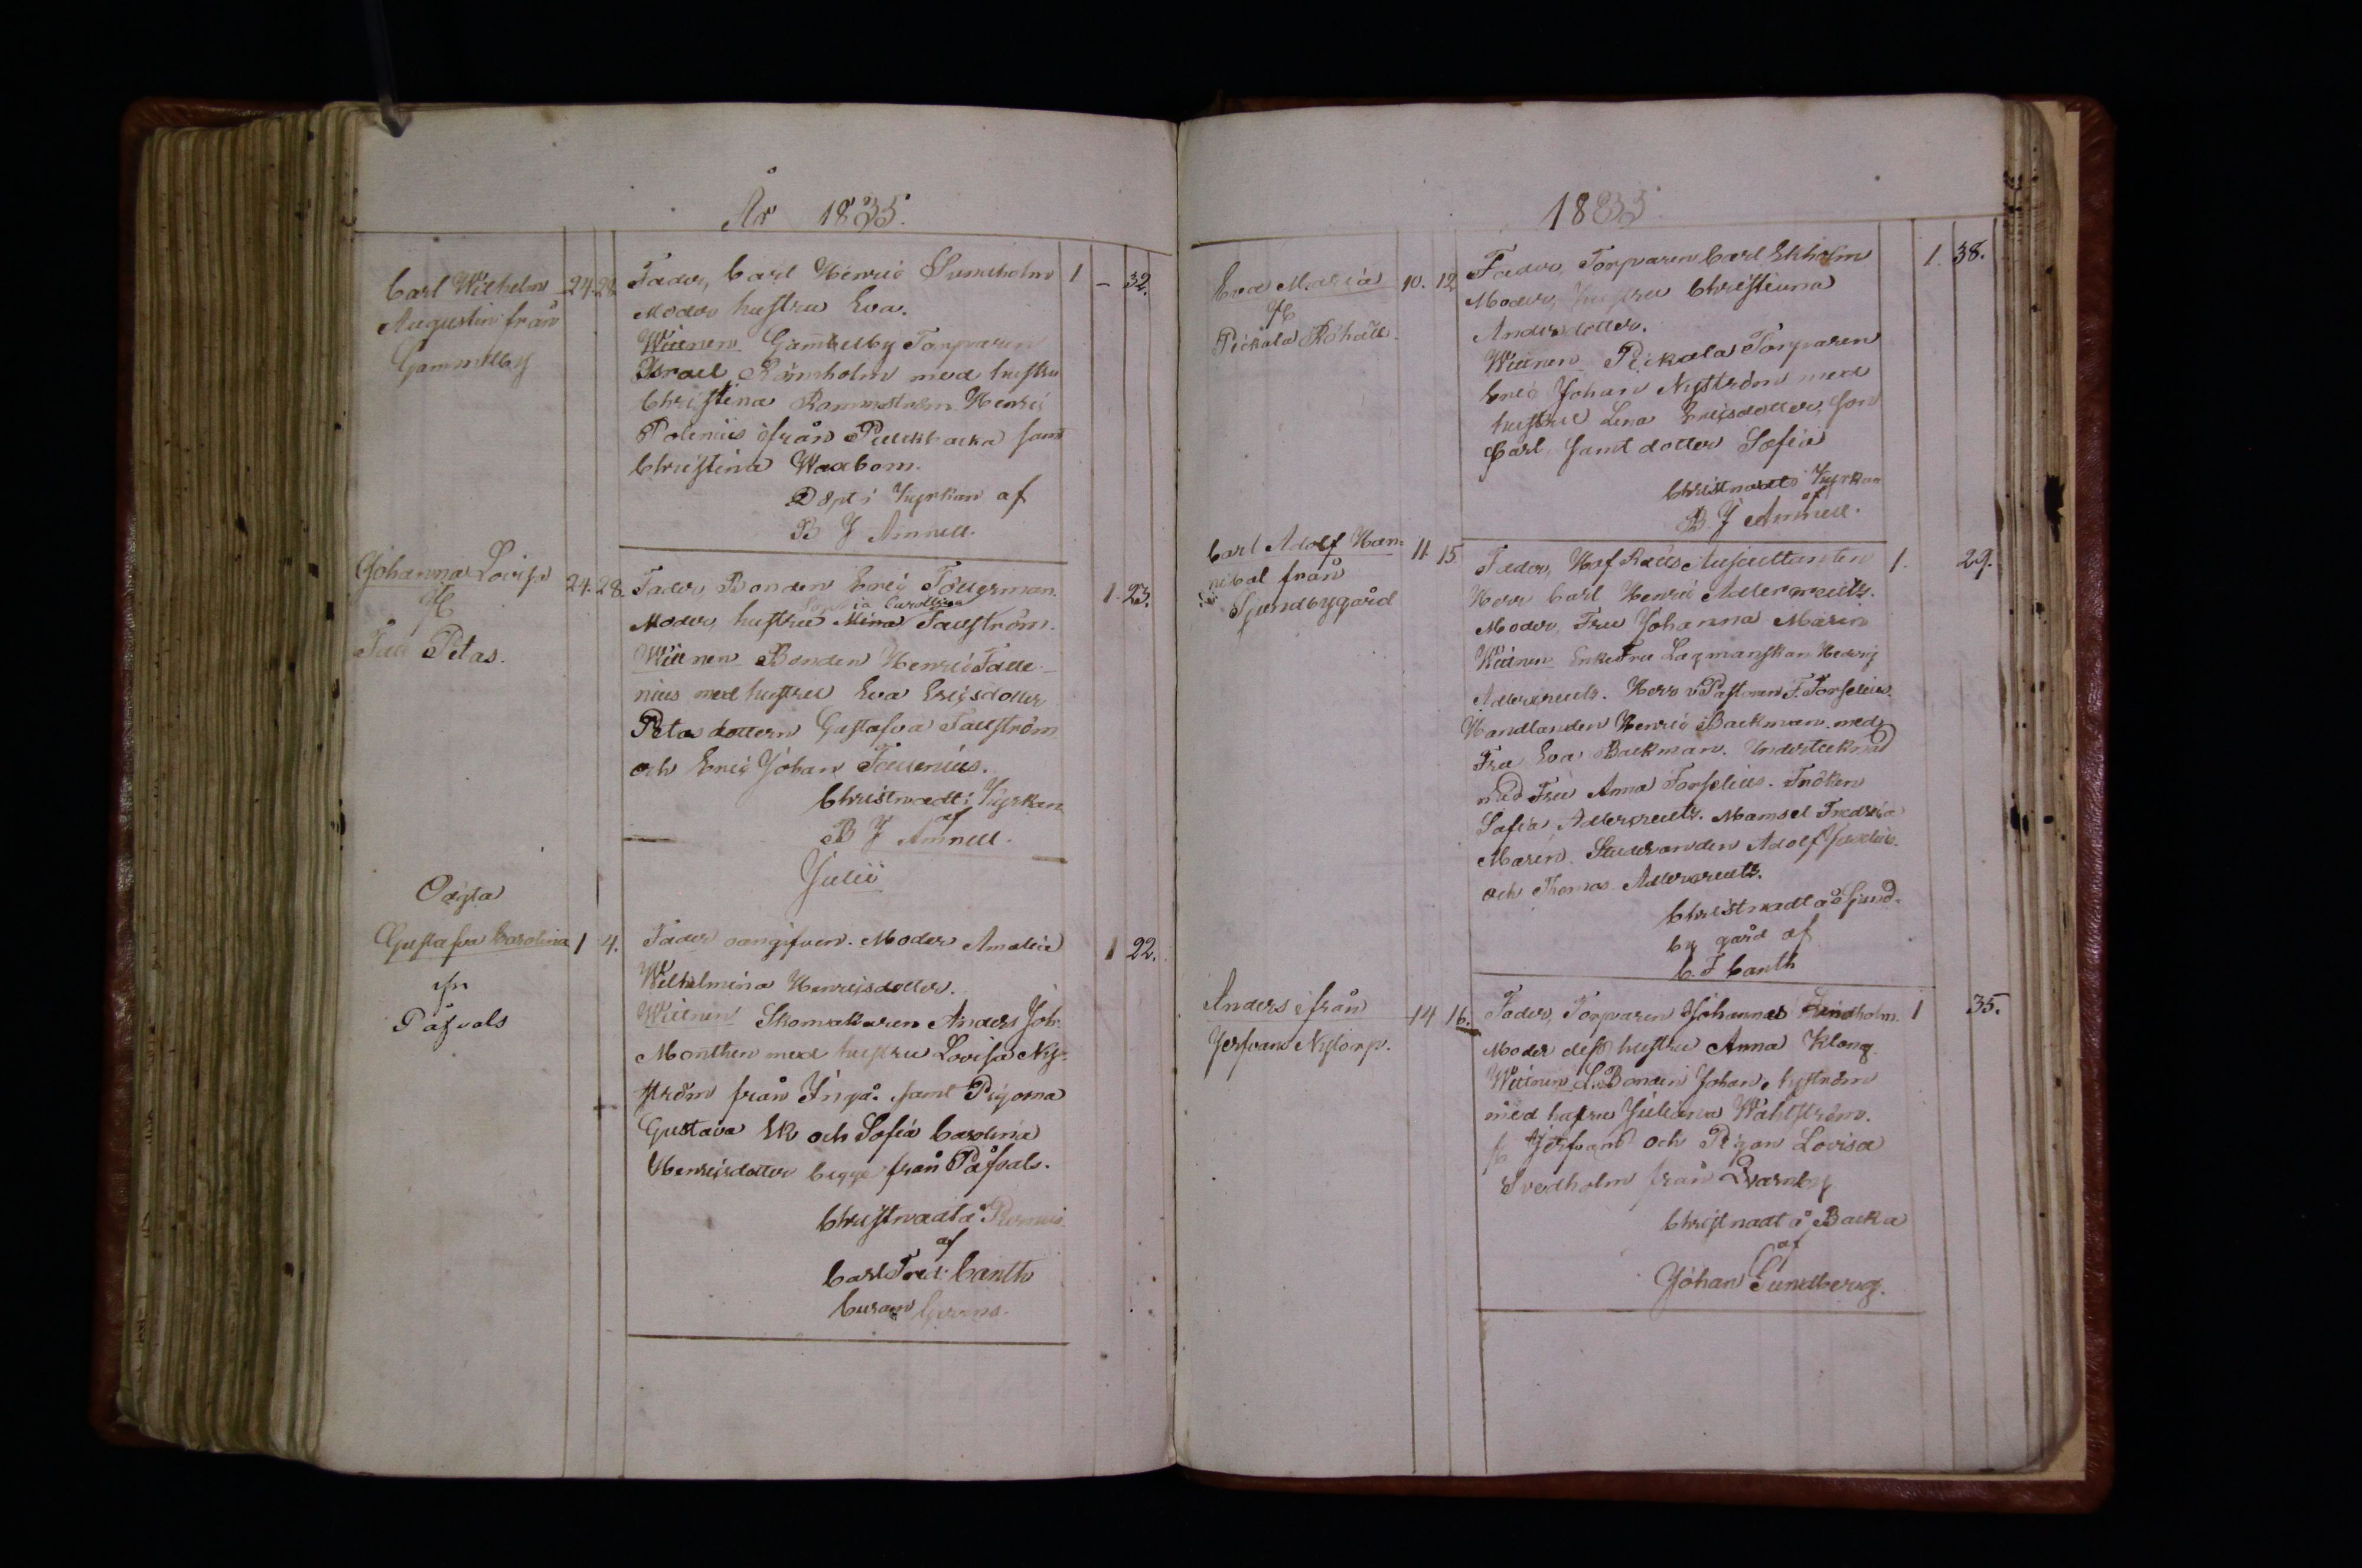 År 1835.
Carl Wilhelm 24. 28 Fader, Carl Henric Sundholm 1 - 32.
Augustin från Moder hustru Eva.
Gammelby Wittnen Gammelby Torparen
Israel Römholm med hustru
Christina Henric
Polenius ifrån samt
Christina Waxbom.
Döpt i Kyrkan af
B J Amnell.
Johanna Lovisa 24. 28 Fader Bonden Eric Tollerman 1. 23.
Sophia Carolina
Moder, hustru Mina Tallström.
Wittnen Bonden Henric Talle-
Petas.
nius med hustru Eva Ericsdotter
Peta dottern Gustafva Tallström
och Eric Johan Tallenius.
Christnadt i Kyrkan
af
B J Amnell.
Julii
Oägta
Gustafva Carolina 1 4. Fader oangifven. Moder Amalia 1 22.
ifrn Wilhelmina Henricsdotter.
Påfvals Wittnen Skomakaren Anders Joh.
Monthen med hustru Lovisa Ny-
ström från Ingå. samt Pigorna
Gustava Ek och Sofia Carolina
Henricsdotter begge från Påfvals.
Christnadt å
af
Carl Fred: Canth
1835
Eva Maria 10. 12 Fader, Torparen Carl Ekholm 1. 38.
Moder, hustru Christiuna
Pickala Andersdotter.
Wittnen Pickala Torparen
Eric Johan Nyström med
hustru Lena Ericsdotter, son
Carl samt dotter Sofia
Christnadt i Kyrkan
af
B. J Amnell.
Carl Adolf Han- 11 15 Fader, Hof Rätts Auscultanten 1. 29.
nibal från Herr Carl Henric Adlercreutz.
Sjundbygård Moder, Fru Johanna Marin
Wittnen Enke Fru Lagmanskan Hedvig
Adlercreutz. Herr v Pastoren F. Forselius.
Handlanden Henric Backman med
Fru Eva Backman. Undertecknad
med Fru Anna Forselius. Fröken
Sofia Adlercreutz. Mamsel Fredrica
Marin. Studeranden Adolf
och Thomas Adlercreutz.
Christnadt å Sjund-
by gård af
C. F Canth
Anders ifrån 14 16. Fader, Torparen Johannes Lindholm. 1 35.
Jerfvans Nytorp. Moder dess hustru Anna Klang.
Wittnen Bonden Johan Nyström
med hustru Juliana Wahlström.
Jerfvans och Pigan Lovisa
Svedholm från Qvarnby
Christnadt å Backa
af
Johan Sundberg.